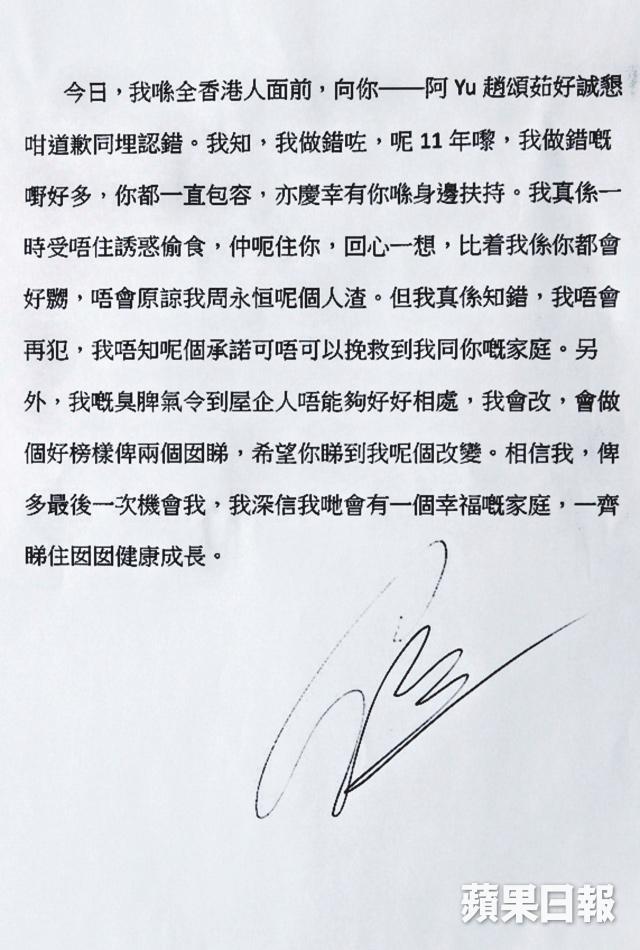 今日，我喺全香港人面前，向你——阿 Yu 趙頌茹好誠懇
咁道歉同埋認錯。我知，我做錯咗，呢 11 年嚟，我做錯嘅
嘢好多，你都一直包容，亦慶幸有你喺身邊扶持。我真係一
時受唔住誘惑偷食，仲呃住你，回心一想，比着我係你都會
好嬲，唔會原諒我周永恒呢個人渣。但我真係知錯，我唔會
再犯，我唔知呢個承諾可唔可以挽救到我同你嘅家庭。另
外，我嘅臭脾氣令到屋企人唔能夠好好相處，我會改，會做
個好榜樣俾兩個囡睇，希望你睇到我呢個改變。相信我，俾
多最後一次機會我，我深信我哋會有一個幸福嘅家庭，一齊
睇住囡囡健康成長。
蘋果日報